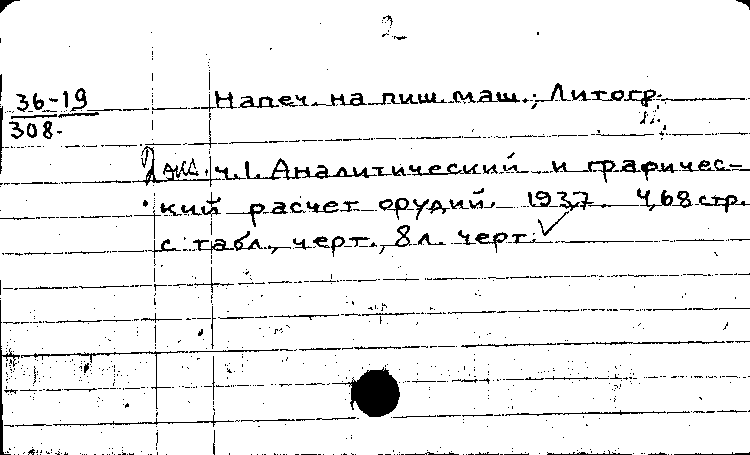 2
36-19
308.
Напеч. на пиш. маш.; Литогр.
2 экз. ч.1. Аналитический и графичес-
кий расчет орудий. 1937. 4,68 стр.
с табл., черт., 8 л. черт.